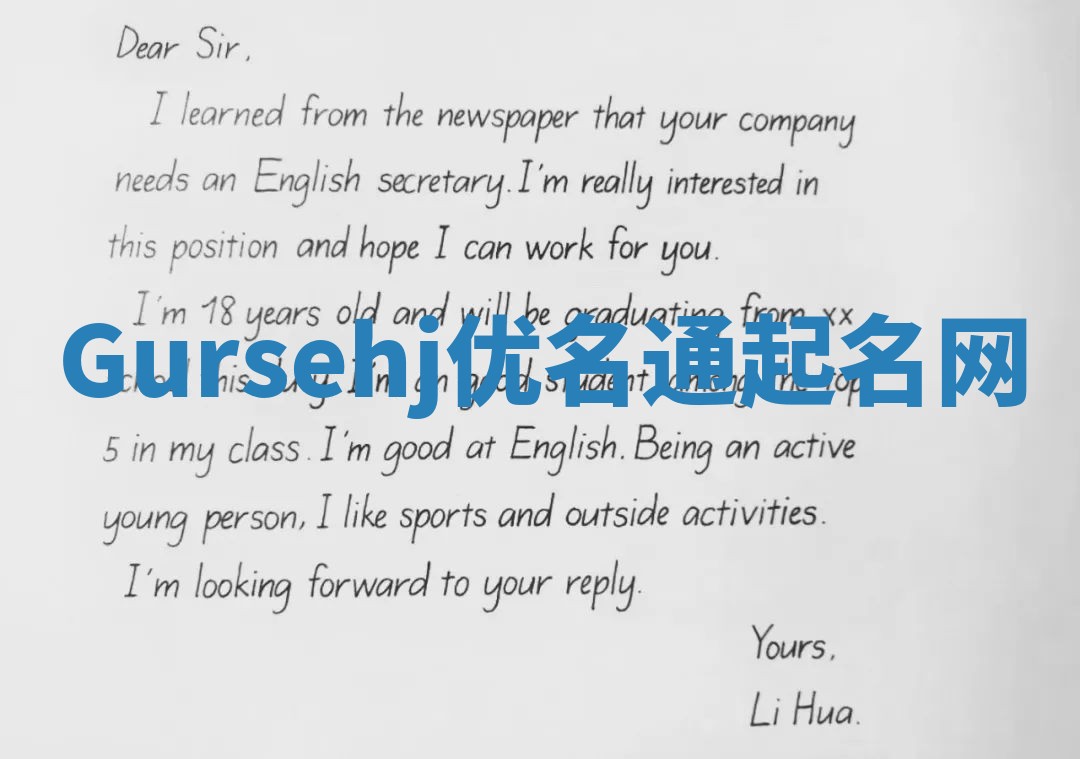 Dear Sir,
I learned from the newspaper that your company
needs an English secretary. I'm really interested in
this position and hope I can work for you.
I'm 18 years old and will be graduating from xx
Gursehj优名通起名网
this July. I'm an good student among the top
5 in my class. I'm good at English. Being an active
young person, I like sports and outside activities.
I'm looking forward to your reply.
Yours,
Li Hua.